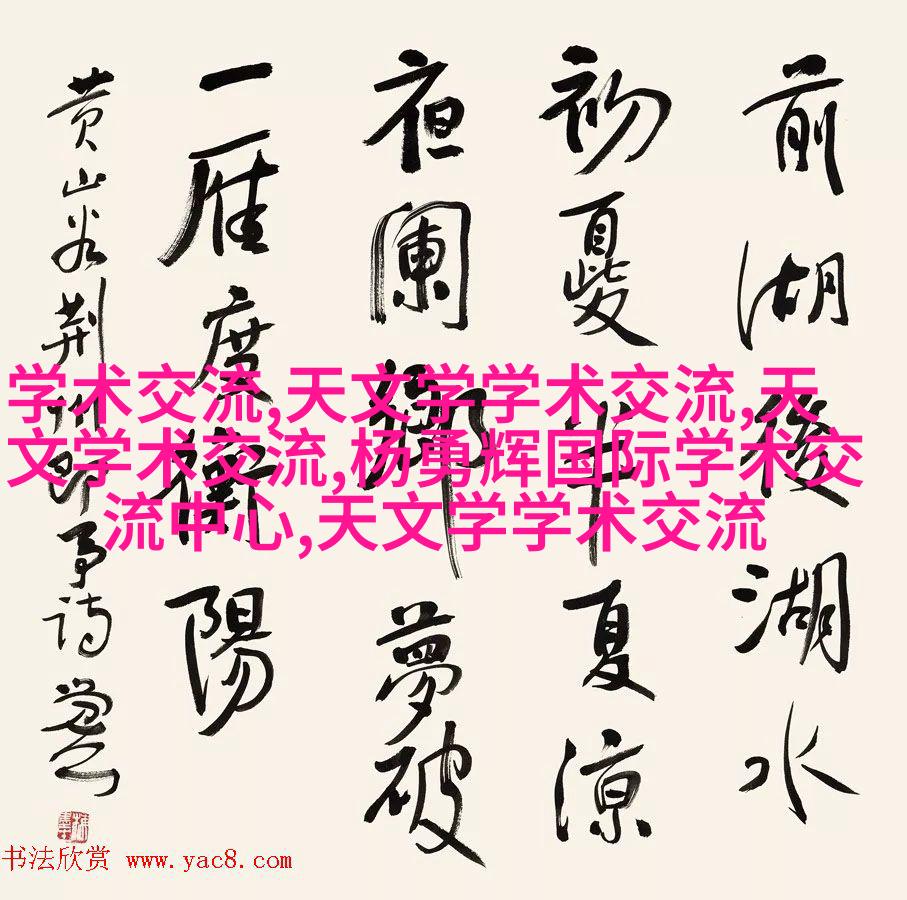 前湖後湖水
初夏半夏涼
夜闌鄉夢破
一雁度衡陽
黄山谷荆州即事诗
学术交流,天文学学术交流,天
文学术交流,杨勇辉国际学术交
流中心,天文学学术交流
书法欣赏 www.yac8.com